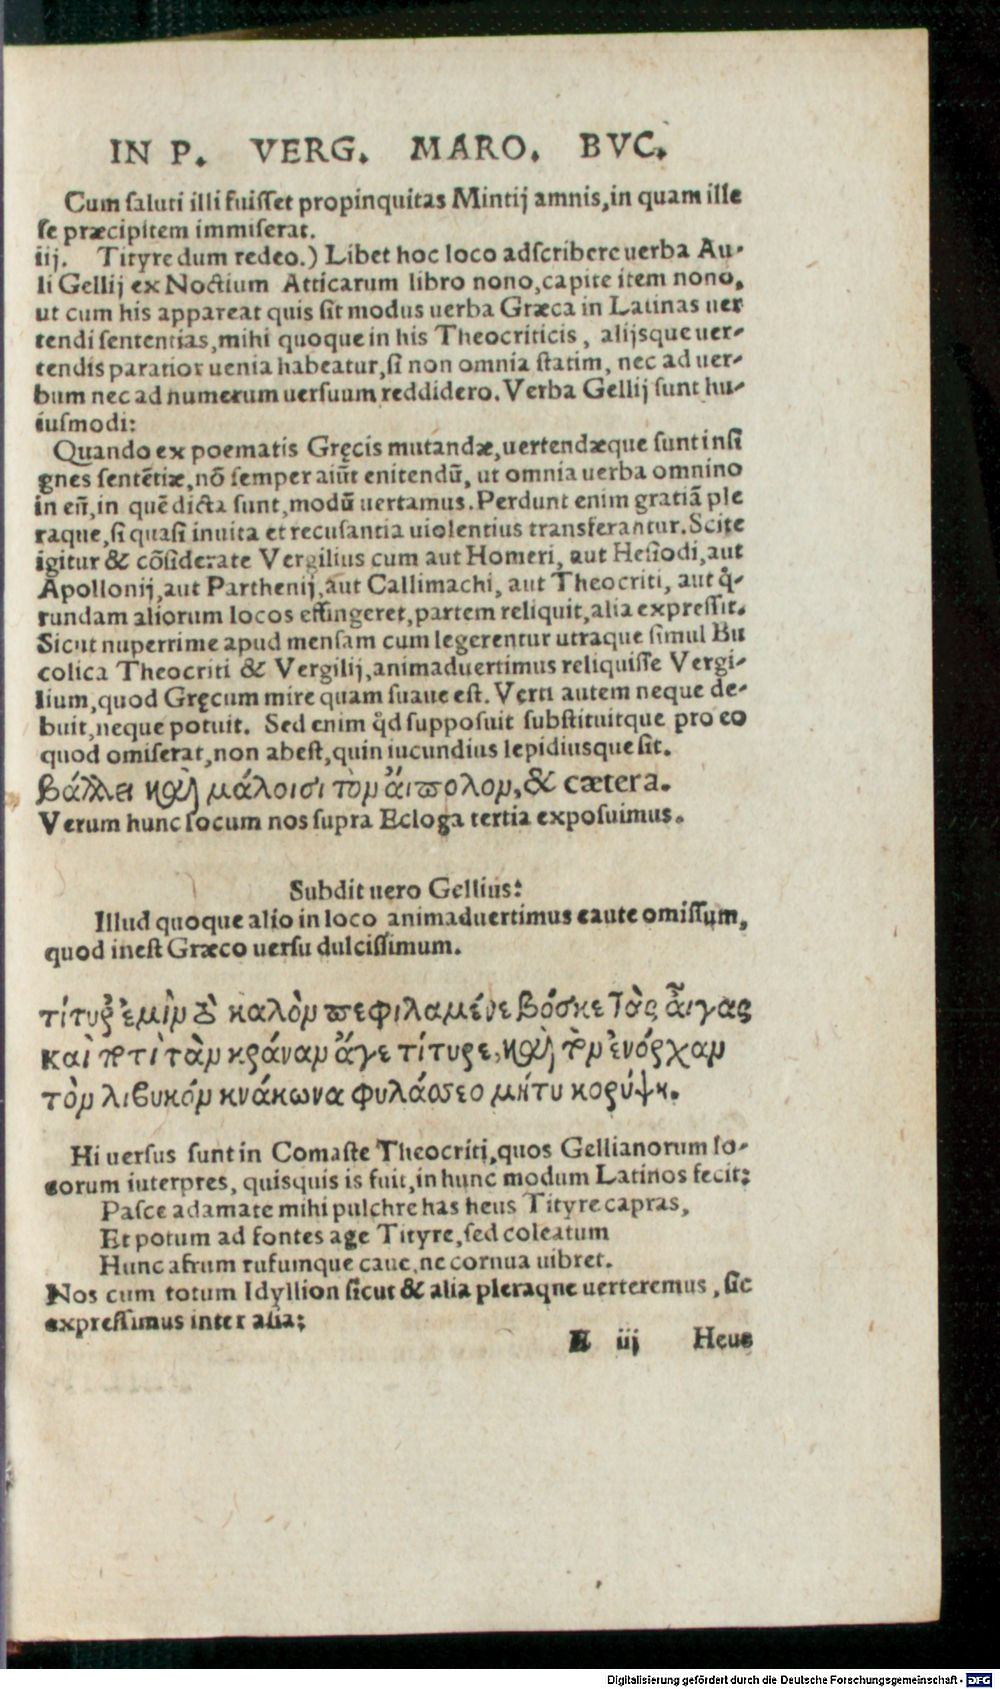 IN P. VERG. MARO. BVC.
Cum saluti illi fuisset propinquitas Mintij amnis, in quam ille
se præcipitem immiserat.
iij. Tityre dum redeo.) Libet hoc loco adscribere uerba Au-
li Gellij ex Noctium Atticarum libro nono, capite item nono,
ut cum his appareat quis sit modus uerba Græca in Latinas uer
tendi sententias, mihi quoque in his Theocriticis, alijsque uer-
tendis paratior uenia habeatur, si non omnia statim, nec ad uer-
bum nec ad numerum uersuum reddidero. Verba Gellij sunt hu-
iusmodi:
Quando ex poematis Gręcis mutandæ, uertendæque sunt insi
gnes sentẽtiæ, nõ semper aiũt enitendũ, ut omnia uerba omnino
in eũ, in quẽ dicta sunt, modũ uertamus. Perdunt enim gratiã ple
raque, si quasi inuita et recusantia uiolentius transferantur. Scite
igitur & cõsiderate Vergilius cum aut Homeri, aut Hesiodi, aut
Apollonij, aut Parthenij, aut Callimachi, aut Theocriti, aut q̊-
rundam aliorum locos effingeret, partem reliquit, alia expressit.
Sicut nuperrime apud mensam cum legerentur utraque simul Bu
colica Theocriti & Vergilij, animaduertimus reliquisse Vergi-
lium, quod Gręcum mire quam suaue est. Verti autem neque de-
buit, neque potuit. Sed enim q̊d supposuit substituitque pro eo
quod omiserat, non abest, quin iucundius lepidiusque sit.
βάλλει καὶ μάλοισι τὸν ἄιπολον, & cætera.
Verum hunc locum nos supra Ecloga tertia exposuimus.
Subdit uero Gellius:
Illud quoque alio in loco animaduertimus caute omissum,
quod inest Græco uersu dulcissimum.
τίτυρ᾽ ἐμὶν τὸ καλὸν πεφιλαμένε βόσκε τὰς ἆιγας
καὶ ποτὶ τὰν κράναν ἄγε τίτυρε, καὶ τὸν ἐνόρχαν
τὸν λιβυκόν κνάκωνα φυλάσσεο μήτυ κορύψη.
Hi uersus sunt in Comaste Theocriti, quos Gellianorum lo-
corum iuterpres, quisquis is fuit, in hunc modum Latinos fecit:
Pasce adamate mihi pulchre has heus Tityre capras,
Et potum ad fontes age Tityre, sed coleatum
Hunc afrum rufumque caue, ne cornua uibret.
Nos cum totum Idyllion sicut & alia pleraqne uerteremus, sic
expressimus inter alia:
E iij Heus
Digitalisierung gefördert durch die Deutsche Forschungsgemeinschaft - DFG